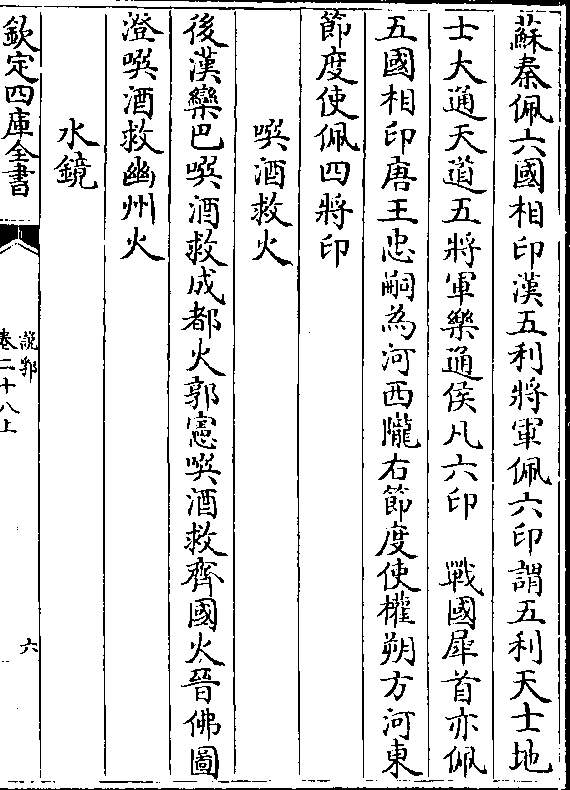 蘇秦佩六國相印漢五利將軍佩六印謂五利天士地
士大通天道五將軍樂通侯凡六印　戰國犀首亦佩
五國相印唐王忠嗣為河西隴右節度使權朔方河東
節度使佩四將印
噀酒救火
後漢欒巴噀酒救成都火郭憲噀酒救齊國火晉佛圖
澄噀酒救幽州火
水鏡
欽定四庫全書
說郛
卷二十八上
六